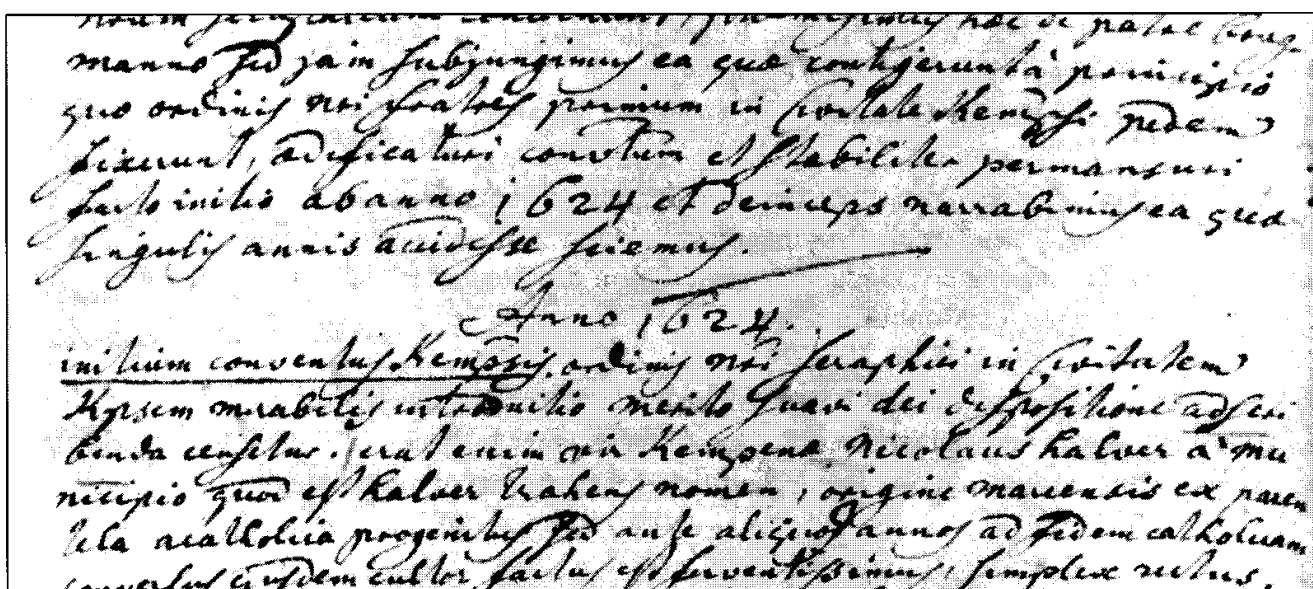 manno sed jam subjungimus ea quæ contigerunt à principio
quo ordinis nri fratres primum in Civitate Kempsi pedem
fixerunt, ædificaturi conventum et stabiliter permansuri
facto initio ab anno 1624 et deinceps narrabimus ea quæ
singulis annis accidisse sciemus.
Anno 1624.
initium conventus Kempsis ordinis nri seraphici in Civitatem
Kpsem mirabilis intromitio merito suavi dei dispositione adscri
benda censetur. erat enim vir Kempenæ Nicolaus halver à mu
nicipio quod est halver trahens nomen, origine marcensis ex paren
tela acatholica progenitus sed ante aliquod annos ad fidem catholicam
conversus ejusdem cultor factus est ferventissimus, simplex rectus,